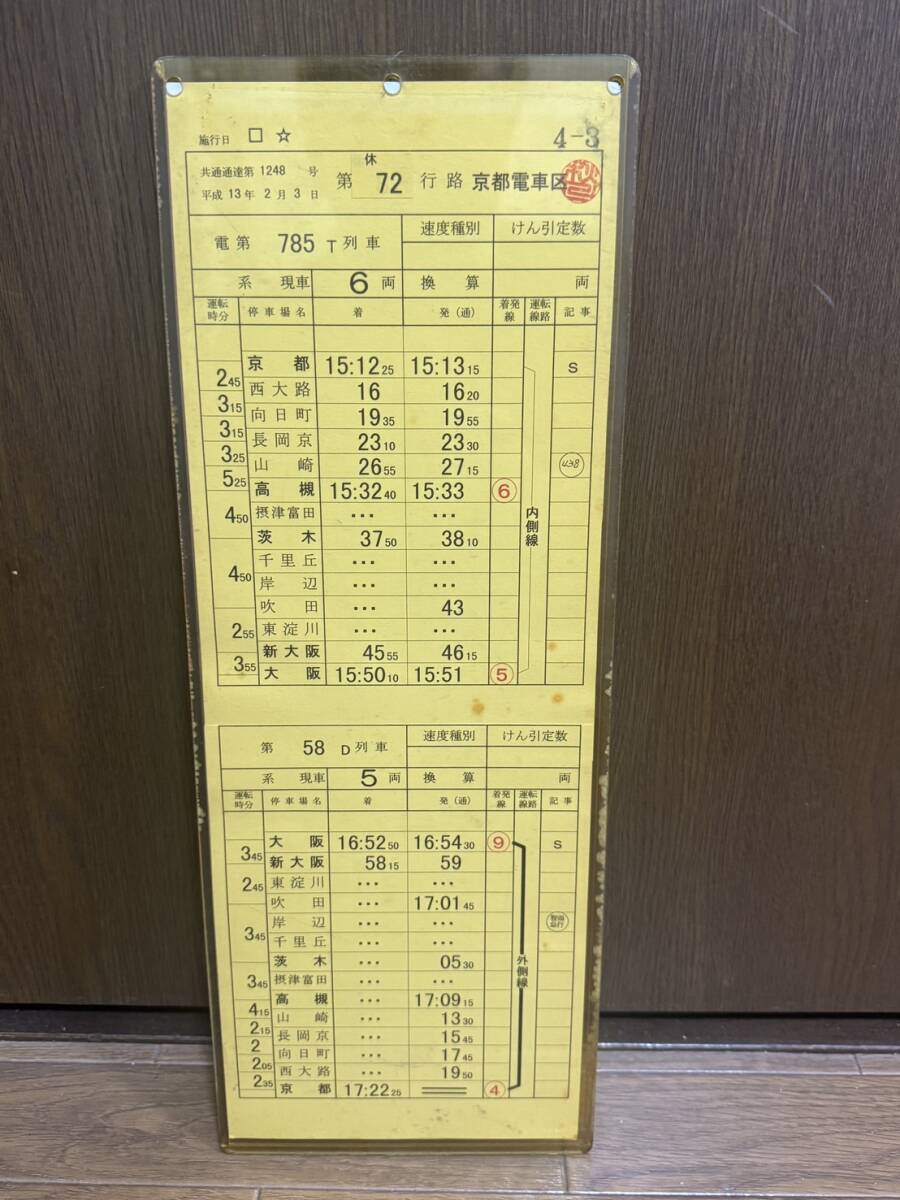 施行日 □ ☆ 4-3
共通通達第 1248 号
平成 13 年 2 月 3 日
休
第 72 行路 京都電車区
電第 785 T 列車 速度種別 けん引定数
系 現車 6 両 換算 両
運転時分 停車場名 着 発(通) 着発線 運転線路 記事
京都 15:12 25 15:13 15 S
2 45
西大路 16 16 20
3 15
向日町 19 35 19 55
3 15
長岡京 23 10 23 30
3 25
山崎 26 55 27 15
5 25
高槻 15:32 40 15:33 ⑥
内側線
摂津富田 … …
4 50
茨木 37 50 38 10
千里丘 … …
4 50
岸辺 … …
吹田 … 43
2 55
東淀川 … …
新大阪 45 55 46 15
3 55
大阪 15:50 10 15:51 ⑤
第 58 D 列車 速度種別 けん引定数
系 現車 5 両 換算 両
運転時分 停車場名 着 発(通) 着発線 運転線路 記事
大阪 16:52 50 16:54 30 ⑨ S
3 45
新大阪 58 15 59
2 45
東淀川 … …
吹田 … 17:01 45
岸辺 … …
3 45
千里丘 … …
茨木 … 05 30
外側線
3 45
摂津富田 … …
高槻 … 17:09 15
4 15
山崎 … 13 30
2 15
長岡京 … 15 45
2
向日町 … 17 45
2 05
西大路 … 19 50
2 35
京都 17:22 25 ④